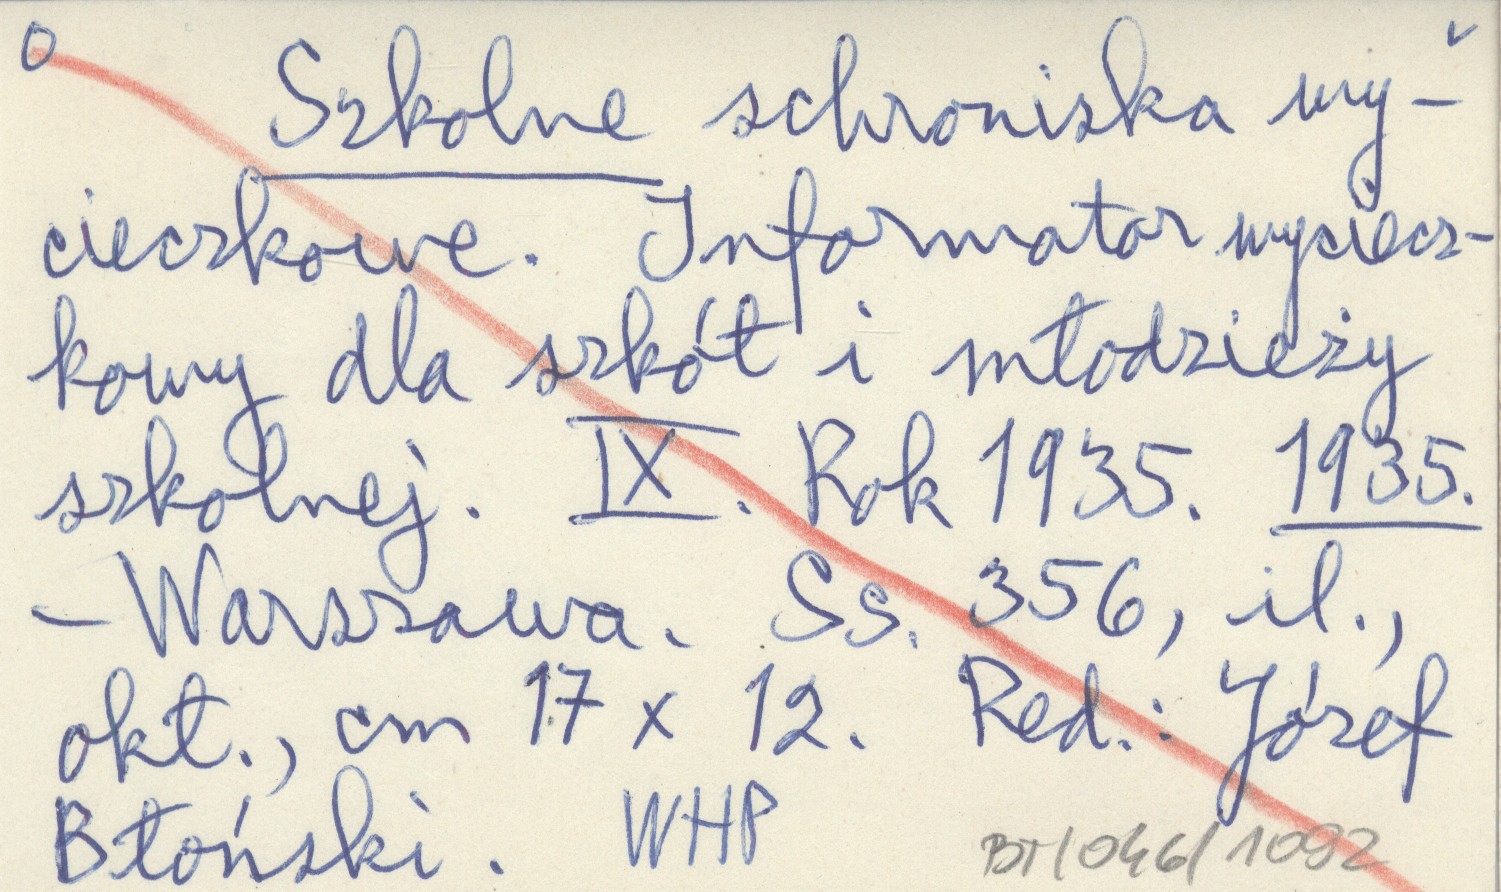 O
Szkolne schroniska wy-
cieczkowe. Informator wyciecz-
kowy dla szkół i młodzieży
szkolnej. IX. Rok 1935. 1935.
- Warszawa. Ss. 356, il.,
okł., cm 17 x 12. Red.: Józef
Błoński. WHP
BT/046/1092